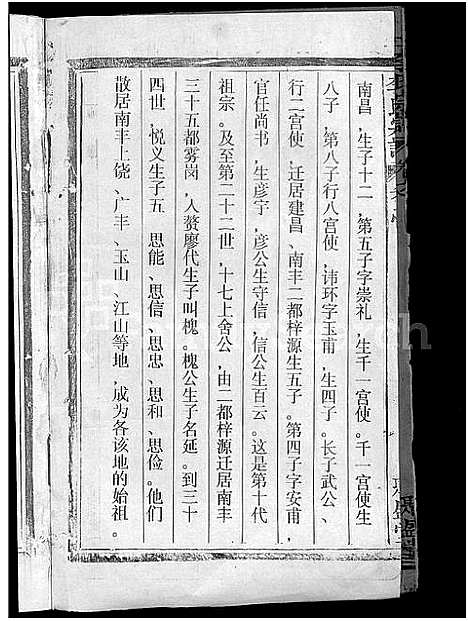 南昌，生子十二，第五子字崇礼，生千一宫使。千一宫使生
八子，第八子行八宫使，讳环字玉甫，生四子。长子武公、
行二宫使，迁居建昌、南丰二都梓源生五子。第四子字安甫，
官任尚书，生彦宇，彦公生守信，信公生百云。这是第十代
祖宗。及至第二十二世，十七上舍公，由二都梓源迁居南丰
三十五都雾岗，人赘廖代生子叫槐。槐公生子名延。到三十
四世，悦义生子五　思能、思信、思忠、思和、思俭。他们
散居南丰上饶、广丰、玉山、江山等地，成为各该地的始祖。